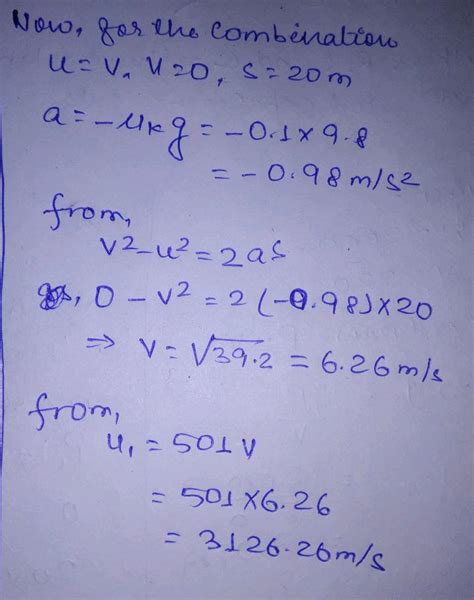 Now, for the combination
u = V, V = 0, s = 20 m
a = -μₖ g = -0.1 × 9.8
= -0.98 m/s²
from,
v² - u² = 2as
0 - v² = 2 (-0.98) × 20
⇒ v = √39.2 = 6.26 m/s
from,
u₁ = 501 v
= 501 × 6.26
= 3126.26 m/s